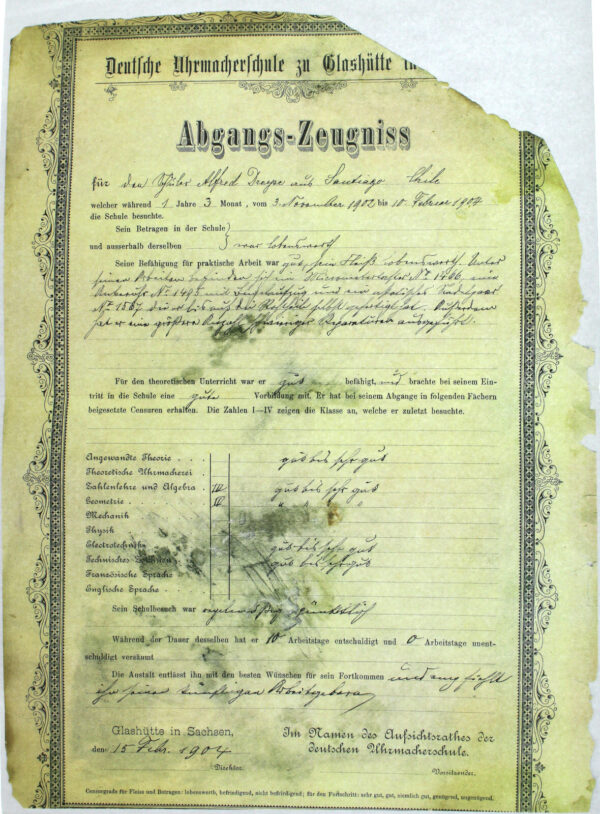 Deutsche Uhrmacherschule zu Glashütte
Abgangs-Zeugniss
für den Schüler Alfred Dreyse aus Santiago Chile
welcher während 1 Jahre 3 Monat, vom 3. November 1902 bis 10 Februar 1904
die Schule besuchte.
Sein Betragen in der Schule
und ausserhalb derselben } war lobenswerth
Seine Befähigung für praktische Arbeit war gut, sein Fleiß lobenswerth. Unter
seinen Arbeiten befinden sich ein Micrometertaster No 1466, eine
No 1495 mit und ein
No 1567 die er bis auf selbst gefertigt hat. Außerdem
hat er eine größere Anzahl schwieriger Reparaturen ausgeführt.
Für den theoretischen Unterricht war er gut befähigt, und brachte bei seinem Ein-
tritt in die Schule eine gute Vorbildung mit. Er hat bei seinem Abgange in folgenden Fächern
beigesetzte Censuren erhalten. Die Zahlen I—IV zeigen die Klasse an, welche er zuletzt besuchte.
Angewandte Theorie . . . gut bis sehr gut
Theoretische Uhrmacherei .
Zahlenlehre und Algebra . III gut bis sehr gut
Geometrie . . IV " " " "
Mechanik
Physik
Electrotechnik gut bis sehr gut
Technisches Zeichnen gut bis sehr gut
Französische Sprache
Englische Sprache .
Sein Schulbesuch war regelmässig pünktlich
Während der Dauer desselben hat er 10 Arbeitstage entschuldigt und 0 Arbeitstage unent-
schuldigt versäumt
Die Anstalt entlässt ihn mit den besten Wünschen für sein Fortkommen und empfiehlt
ihn seinen künftigen Arbeitgebern
Glashütte in Sachsen,
den 15 Febr. 1904
Director.
Im Namen des Aufsichtsrathes der
deutschen Uhrmacherschule.
Vorsitzender.
Censurgrade für Fleiss und Betragen: lobenswerth, befriedigend, nicht befriedigend; für den Fortschritt: sehr gut, gut, ziemlich gut, genügend, ungenügend.